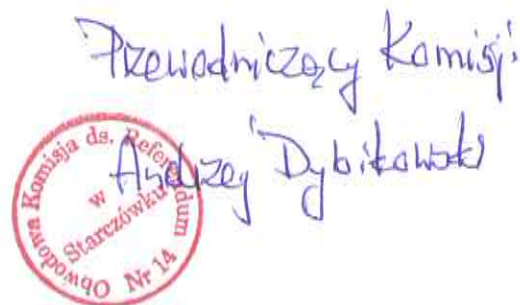 Przewodniczący Komisji:
Andrzej Dybikowski
Obwodowa Komisja ds. Referendum
w
Starczówku
Nr 14